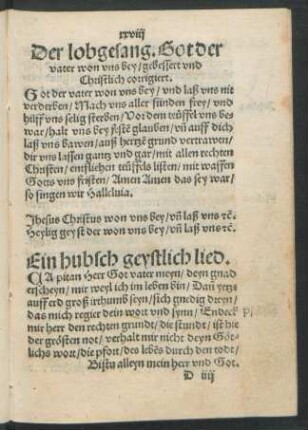 xxviij
Der lobgesang. Got der
vater won vns bey/gebessert vnd
Christlich corrigiert.
Got der vater won vns bey/vnd laß vns nit
verderben/Mach vns aller sünden frey/vnd
hilff vns selig sterben/Vor dem teüffel vns be-
war/halt vns bey festē glauben/vñ auff dich
laß vns bawen/auß hertzē grund vertrawen/
dir vns lassen gantz vnd gar/mit allen rechten
Christen/entfliehen teüffels listen/mit waffen
Gotts vns fristen/Amen Amen das sey war/
so singen wir Halleluia.
Jhesus Christus won vns bey/vñ laß vns ꝛc̄.
Heylig geyst der won vns bey/vñ laß vns ꝛc̄.
Ein hubsch geystlich lied.
CApitan Herr Got vater meyn/deyn gnad
erscheyn/mir weyl ich im leben bin/Dañ yetzt
auff erd groß irthumb seyn/sich gnedig dreyn/
das mich regier dein wort vnd synn/Endeck
mir herr den rechten grundt/die stundt/ist hie
der grösten not/verhalt mir nicht deyn Göt-
lichs wort/die pfort/des lebēs durch den todt/
Bistu alleyn mein herr vnd Got.
D iiij